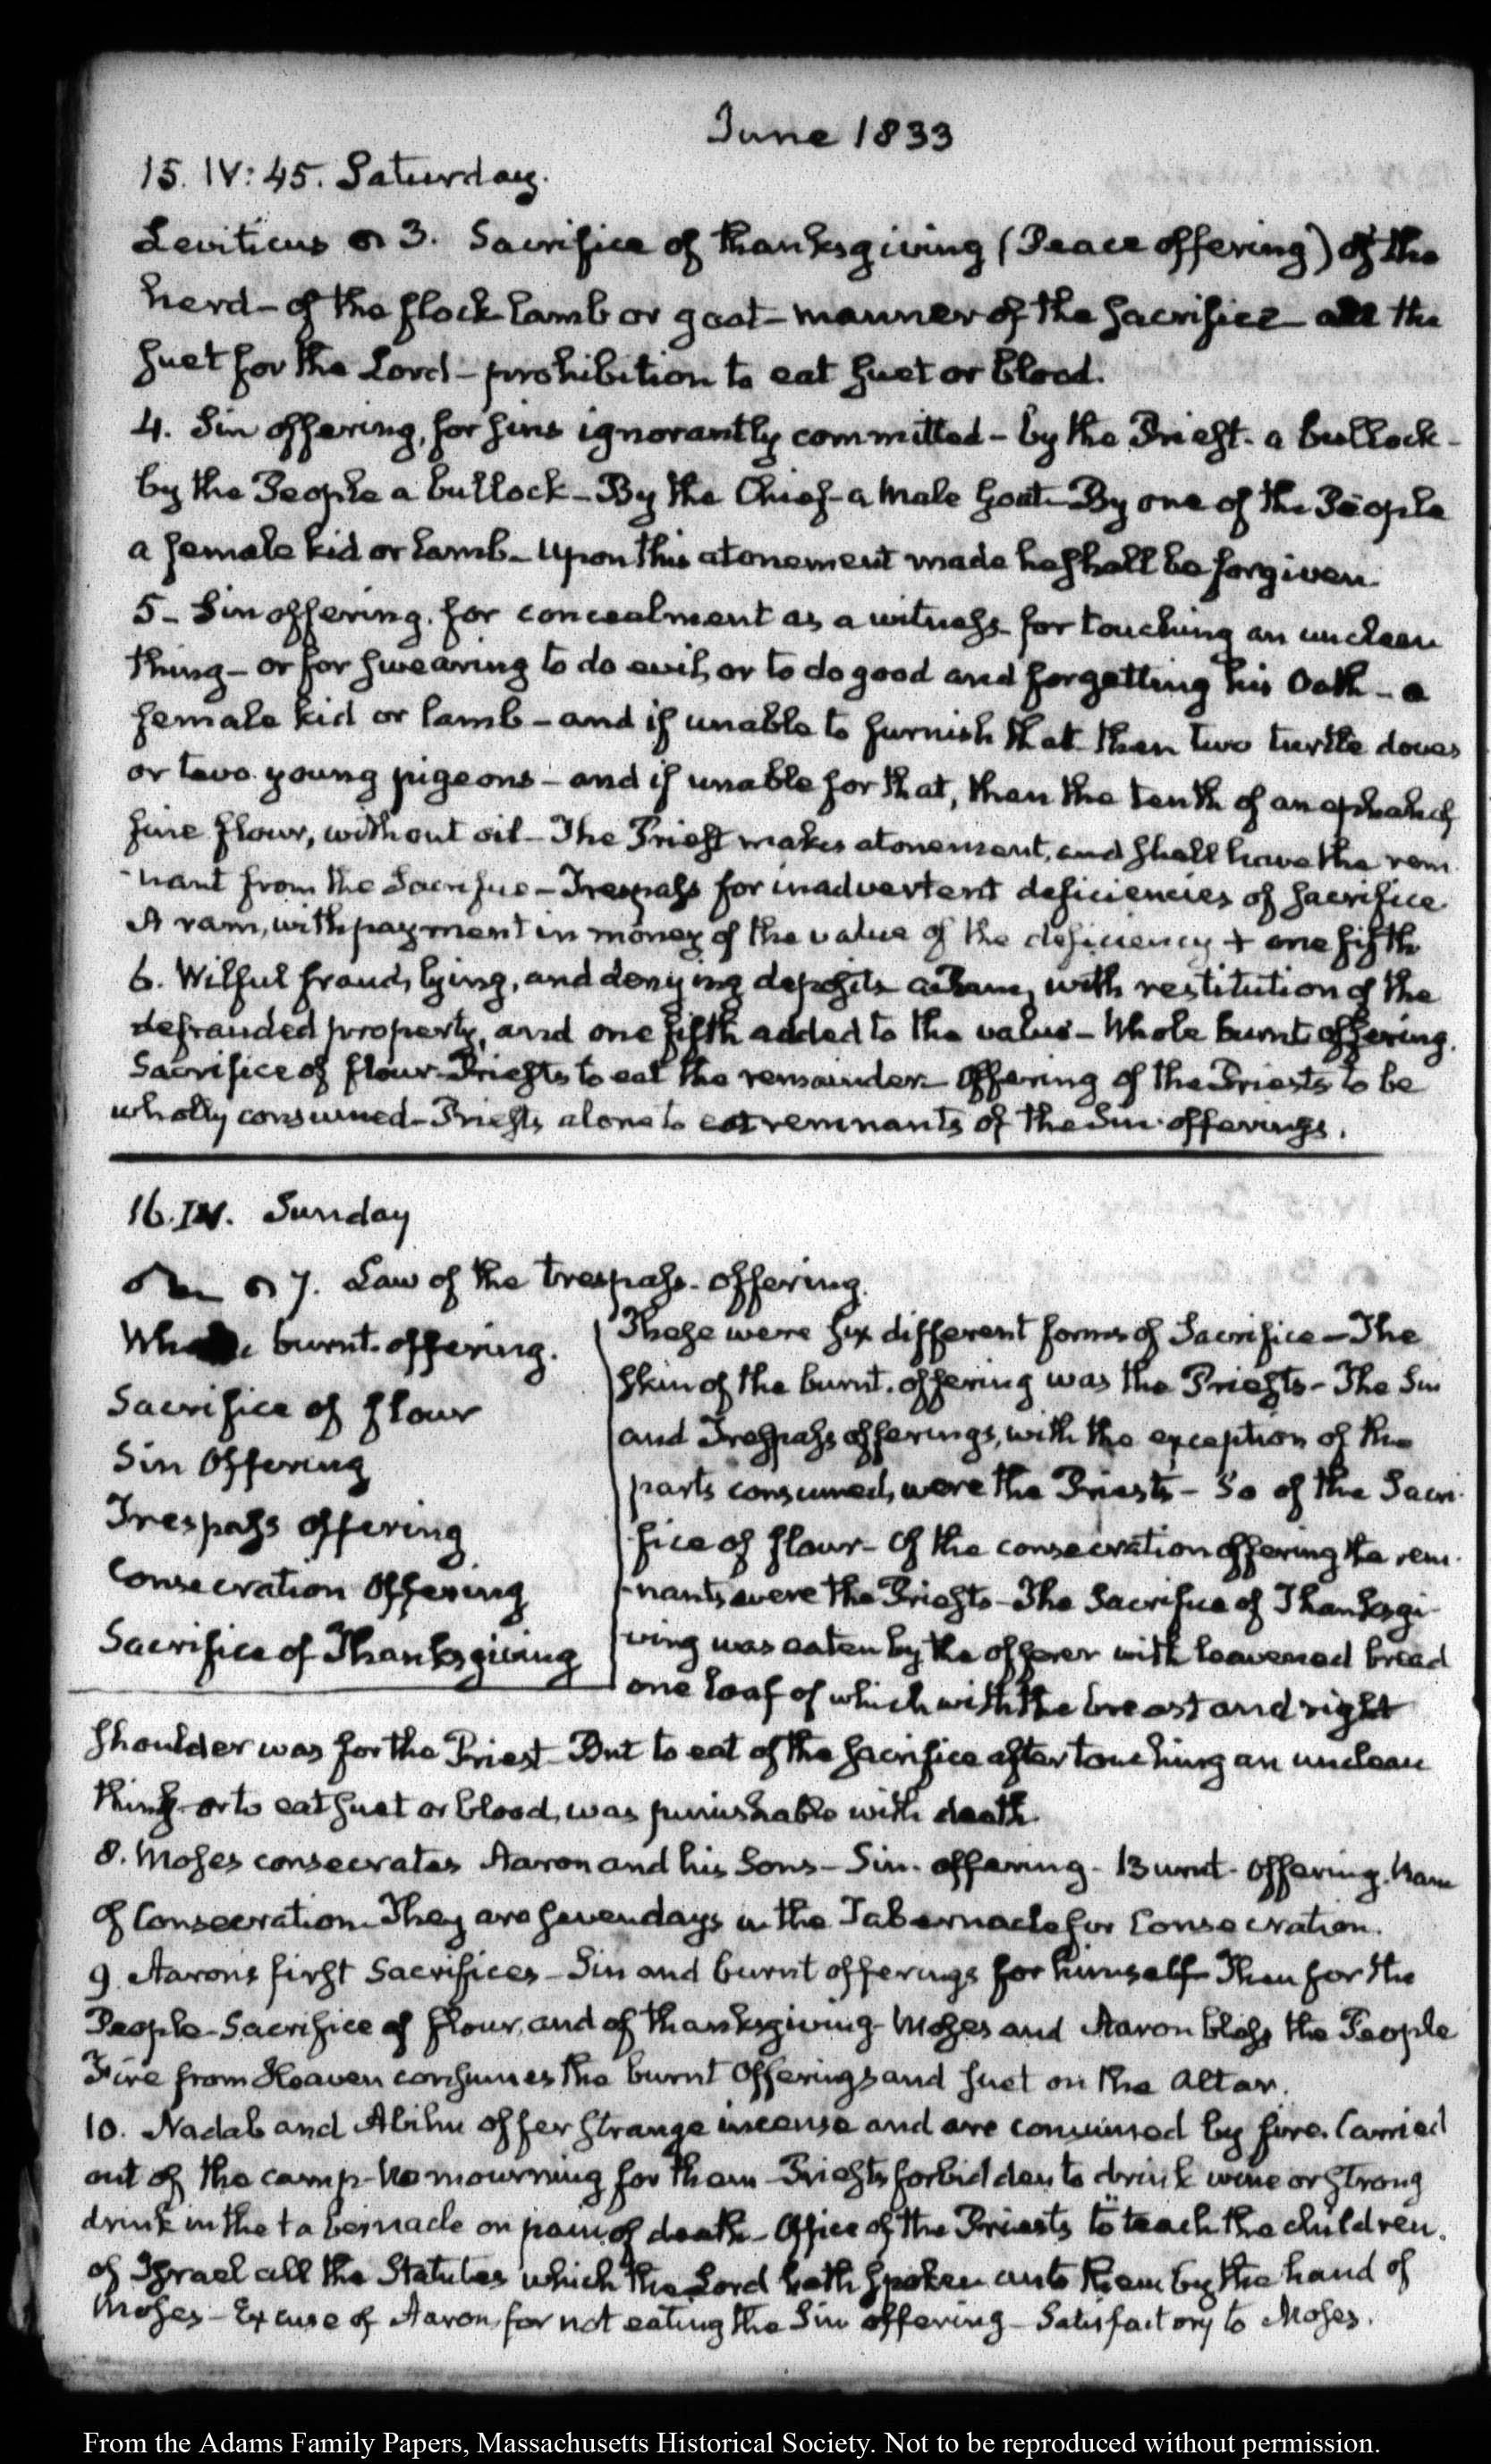 June 1833
15. IV: 45. Saturday.
Leviticus 3. Sacrifice of thanksgiving (Peace offering) of the
herd – of the flock lamb or goat – manner of the sacrifice – all the
suet for the Lord – prohibition to eat suet or blood.
4. Sin offering, for sins ignorantly committed – by the Priest. a bullock –
by the People a bullock – By the Chief – a male goat – By one of the People
a female kid or lamb – Upon this atonement made he shall be forgiven
5 – Sin offering. for concealment as a witness – for touching an unclean
thing – or for swearing to do evil, or to do good and forgetting his Oath – a
female kid or lamb – and if unable to furnish that then two turtle doves
or two young pigeons – and if unable for that, then the tenth of an ephah of
fine flour, without oil – The Priest makes atonement, and shall have the rem-
-nant from the Sacrifice – Trespass for inadvertent deficiencies of sacrifice
A ram, with payment in money of the value of the deficiency + one fifth
6. Wilful fraud, lying, and denying deposits a Ram, with restitution of the
defrauded property, and one fifth added to the value – Whole burnt offering.
Sacrifice of flour – Priests to eat the remainder – Offering of the Priests to be
wholly consumed – Priests alone to eat remnants of the Sin offerings.
16. IV. Sunday
7. Law of the trespass. offering.
Whole burnt. offering.
Sacrifice of flour
Sin Offering
Trespass offering
Consecration Offering
Sacrifice of Thanksgiving
These were six different forms of Sacrifice – The
skin of the burnt. offering was the Priests – The Sin
and Trespass offerings, with the exception of the
parts consumed, were the Priests – So of the Sacri-
fice of flour – Of the consecration offering the rem-
-nants were the Priests – The Sacrifice of Thanksgi-
ving was eaten by the offerer with leavened bread
one loaf of which with the breast and right
shoulder was for the Priest – But to eat of the sacrifice after touching an unclean
thing – or to eat suet or blood, was punishable with death
8. Moses consecrates Aaron and his Sons – Sin. offering – Burnt. offering. Ram
of Consecration – They are seven days in the Tabernacle for Consecration.
9. Aaron's first Sacrifices – Sin and burnt offerings for himself – Then for the
People – Sacrifice of flour, and of thanksgiving – Moses and Aaron bless the People
Fire from Heaven consumes the burnt Offerings and suet on the Altar.
10. Nadab and Abihu offer strange incense and are consumed by fire. Carried
out of the camp – No mourning for them – Priests forbidden to drink wine or strong
drink in the tabernacle on pain of death – Office of the Priests to teach the children
of Israel all the Statutes which the Lord hath spoken unto them by the hand of
Moses – Excuse of Aaron, for not eating the Sin offering – Satisfactory to Moses.
From the Adams Family Papers, Massachusetts Historical Society. Not to be reproduced without permission.